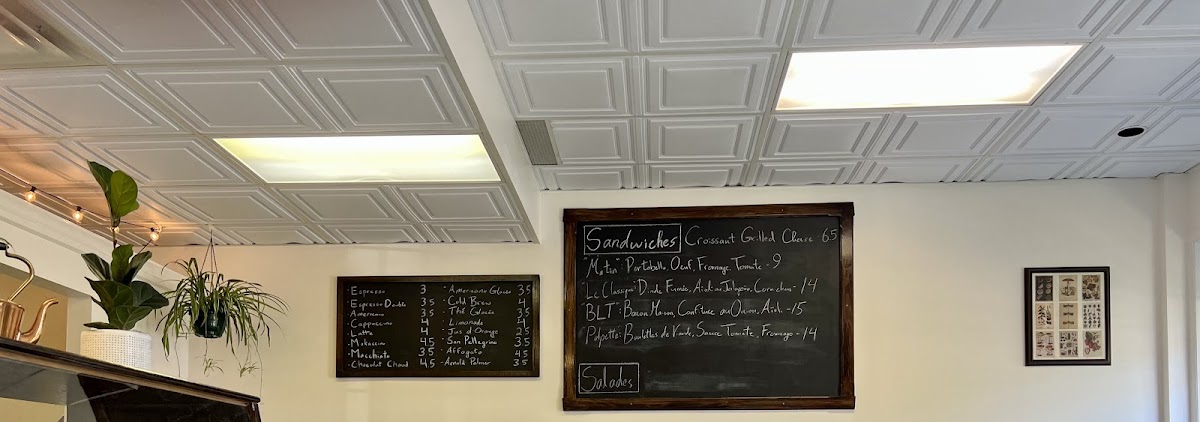 - Espresso 3
- Espresso Double 3.5
- Americain 3.5
- Cappuccino 4
- Latte 4
- Mokaccin 4.5
- Macchiato 3.5
- Chocolat Chaud 4.5
- Americano Glacés 3.5
- Cold Brew 4
- Thé Glacés 3.5
- Limonade 4
- Jus d'Orange 2.5
- San Pellegrino 3.5
- Affogato 4.5
- Arnold Palmer 3.5
Sandwiches Croissant Grilled Cheese - 6.5
"Matin": Portobello, Oeuf, Fromage, Tomate - 9
"Le Classique": Dinde Fumée, Aioli au Jalapeño, Cornichon - 14
"BLT": Bacon Maison, Confiture aux Oignon, Aioli - 15
Polpette: Boulettes de Viande, Sauce Tomate, Fromage - 14
Salades